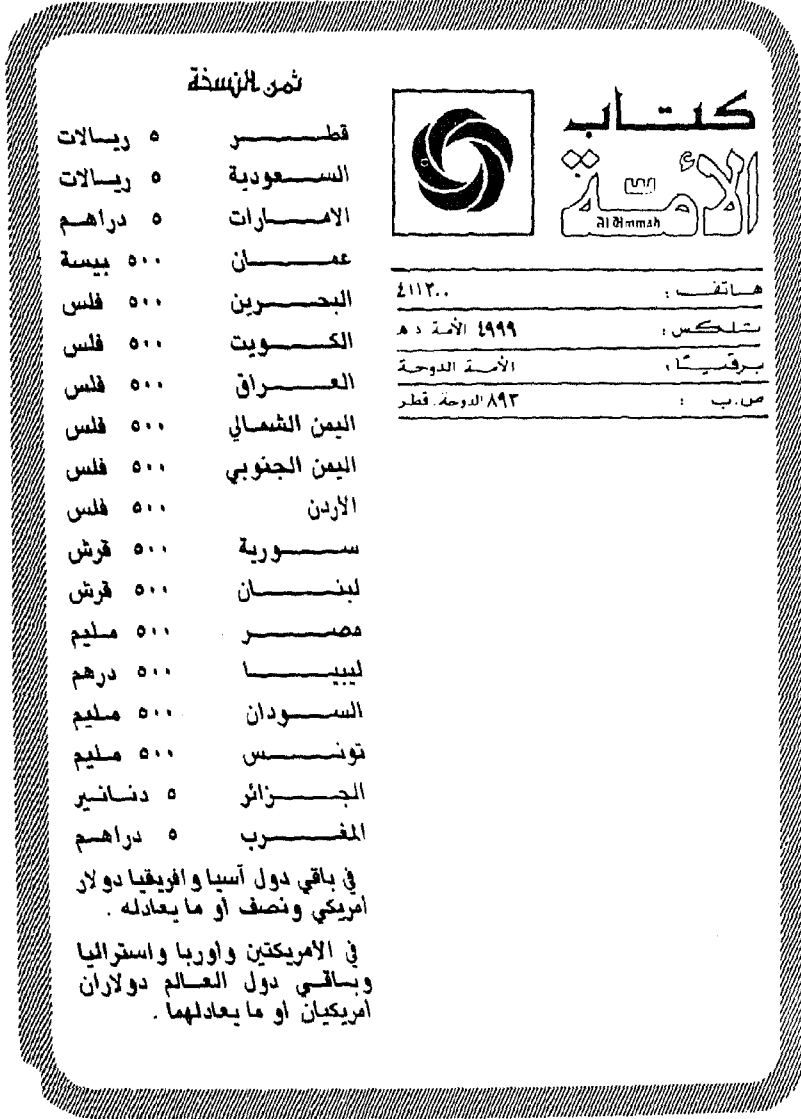 كتاب
الأمة
Al Ummah
هاتف : ٤١١٣٠٠
تلكس : ٤٩٩٩ الأمة د هـ
برقياً : الأمة الدوحة
ص.ب : ٨٩٣ الدوحة. قطر
ثمن النسخة
قطر ٥ ريالات
السعودية ٥ ريالات
الامارات ٥ دراهم
عمان ٥٠٠ بيسة
البحرين ٥٠٠ فلس
الكويت ٥٠٠ فلس
العراق ٥٠٠ فلس
اليمن الشمالي ٥٠٠ فلس
اليمن الجنوبي ٥٠٠ فلس
الأردن ٥٠٠ فلس
سورية ٥٠٠ قرش
لبنان ٥٠٠ قرش
مصر ٥٠٠ مليم
ليبيا ٥٠٠ درهم
السودان ٥٠٠ مليم
تونس ٥٠٠ مليم
الجزائر ٥ دنانير
المغرب ٥ دراهم
في باقي دول آسيا وافريقيا دولار
امريكي ونصف او ما يعادله .
في الأمريكتين واوربا واستراليا
وباقي دول العالم دولاران
امريكيان او ما يعادلهما .